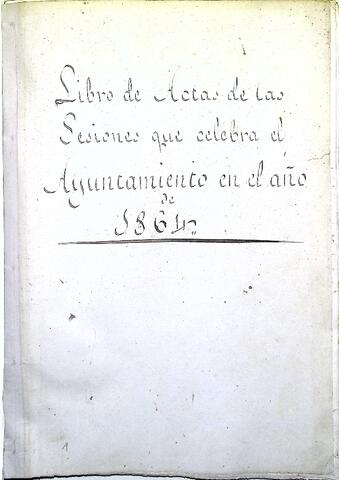 Libro de Actas de las
Sesiones que celebra el
Ayuntamiento en el año
de
1864
1